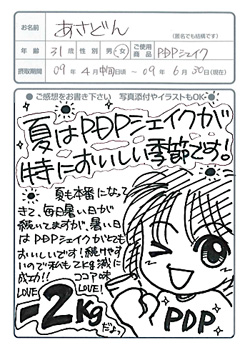 お名前 あさどん
(匿名でも結構です)
年齢 31歳 性別 男・女 ご使用商品 PDPシェイク
摂取期間 09年4月中旬日頃 ～ 09年6月30日(現在)
ご感想をお書き下さい 写真添付やイラストもOK
夏はPDPシェイクが
特においしい季節です!
夏も本番になって
きて、毎日暑い日が
続いてますが、暑い日
はPDPシェイクがとても
おいしいです!続けやす
いので私も2kg減に
成功!!
ココア味
LOVE! LOVE!
-2kg
だよっ
PDP